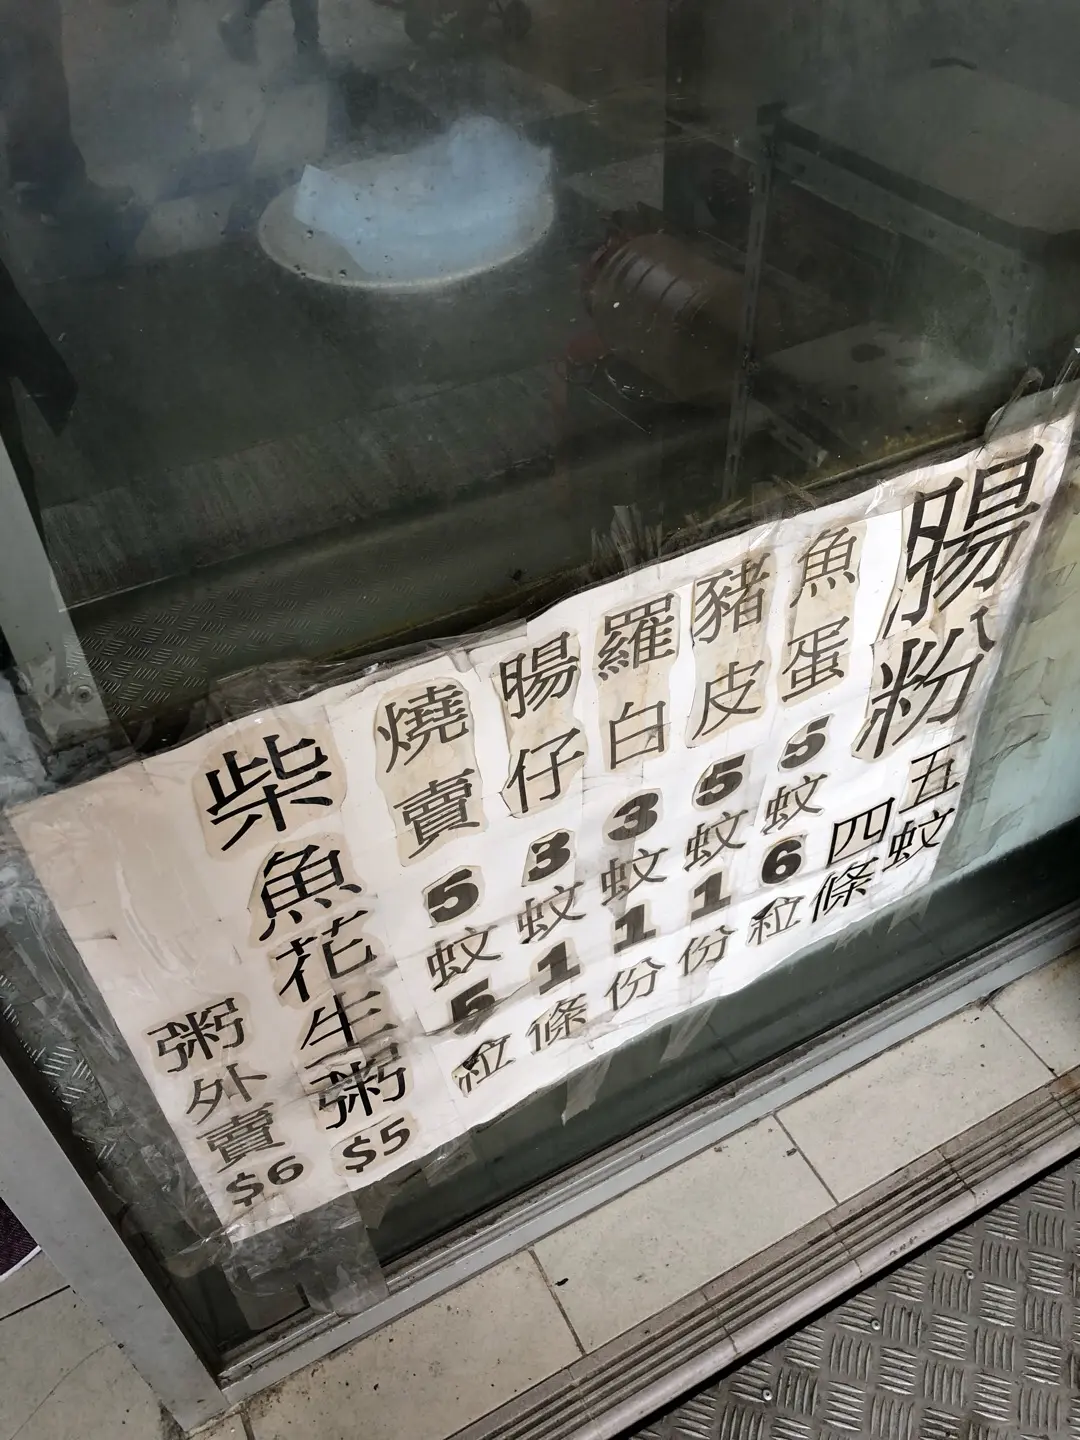 腸粉
五蚊
四條
魚蛋5蚊6粒
豬皮5蚊1份
羅白3蚊1份
腸仔3蚊1條
燒賣5蚊5粒
柴魚花生粥$5
粥外賣$6